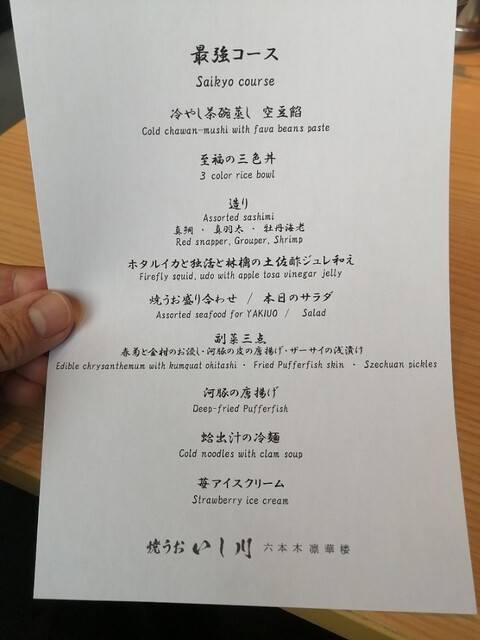 最強コース
Saikyo course
冷やし茶碗蒸し 空豆餡
Cold chawan-mushi with fava beans paste
至福の三色丼
3 color rice bowl
造り
Assorted sashimi
真鯛 ・ 真羽太 ・ 牡丹海老
Red snapper, Grouper, Shrimp
ホタルイカと独活と林檎の土佐酢ジュレ和え
Firefly squid, udo with apple tosa vinegar jelly
焼うお盛り合わせ / 本日のサラダ
Assorted seafood for YAKIUO / Salad
副菜三点
春菊と金柑のお浸し・河豚の皮の唐揚げ・ザーサイの浅漬け
Edible chrysanthemum with kumquat ohitashi ・ Fried Pufferfish skin ・ Szechuan pickles
河豚の唐揚げ
Deep-fried Pufferfish
蛤出汁の冷麺
Cold noodles with clam soup
苺アイスクリーム
Strawberry ice cream
焼うお いし川 六本木 凛華楼